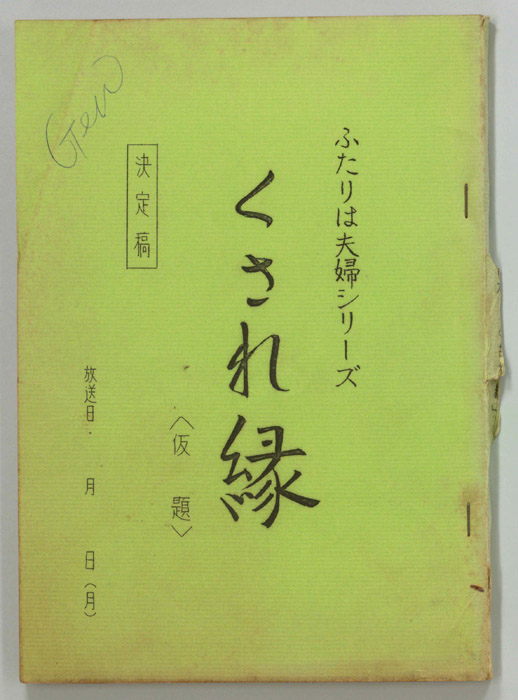 ふたりは夫婦シリーズ
くされ縁
〈仮題〉
決定稿
放送日・　月　日(月)
Gew